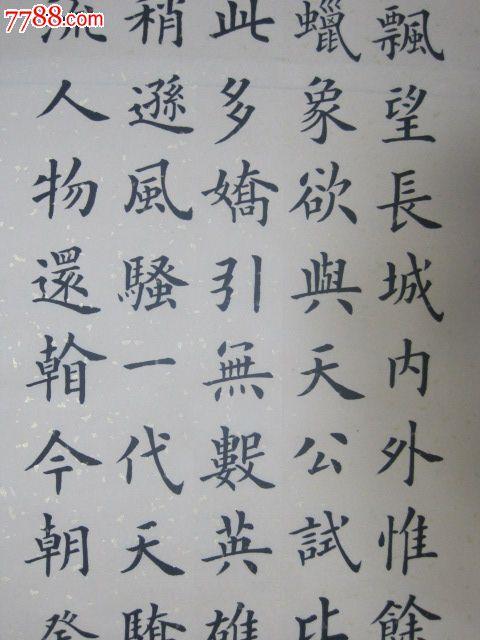 7788.com
飄望長城内外惟餘
蠟象欲與天公試比
此多嬌引無數英雄
稍遜風騷一代天驕
流人物還看今朝癸